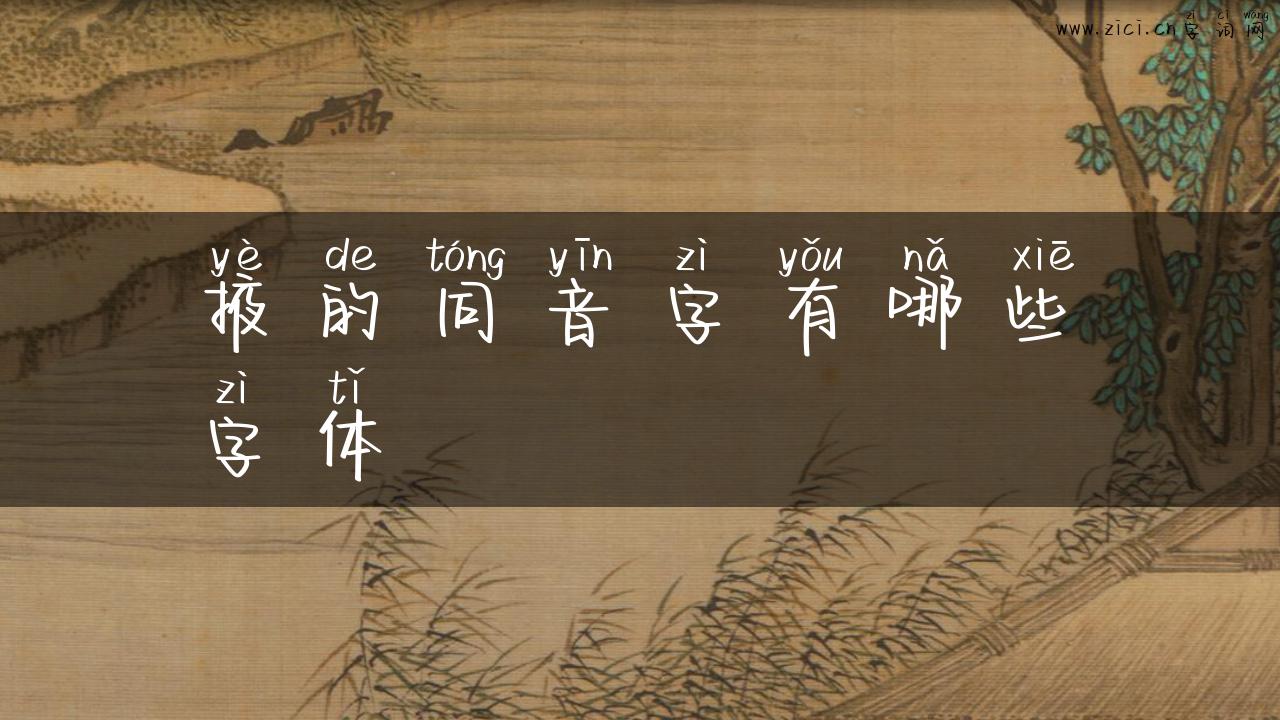 zì cí wǎng
www.zici.cn字词网
yè de tóng yīn zì yǒu nǎ xiē
掖的同音字有哪些
zì tǐ
字体